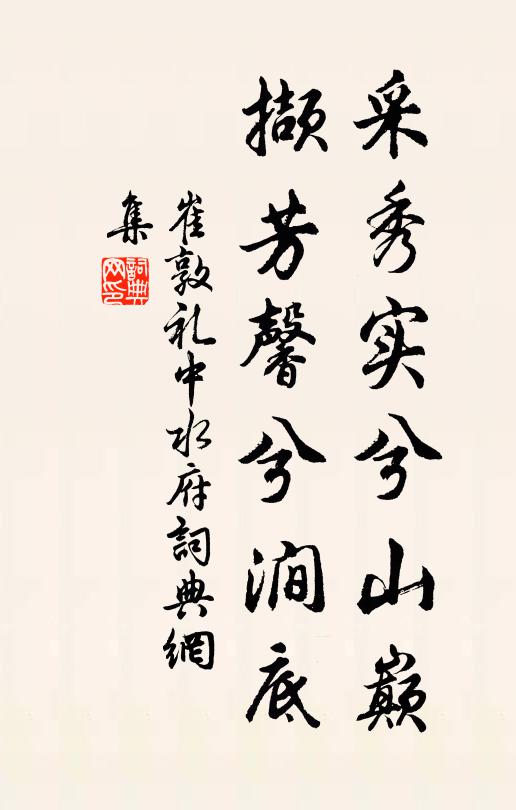 采秀实兮山巅
撷芳馨兮涧底
崔敦礼中水府詞典網
集
詞典網印